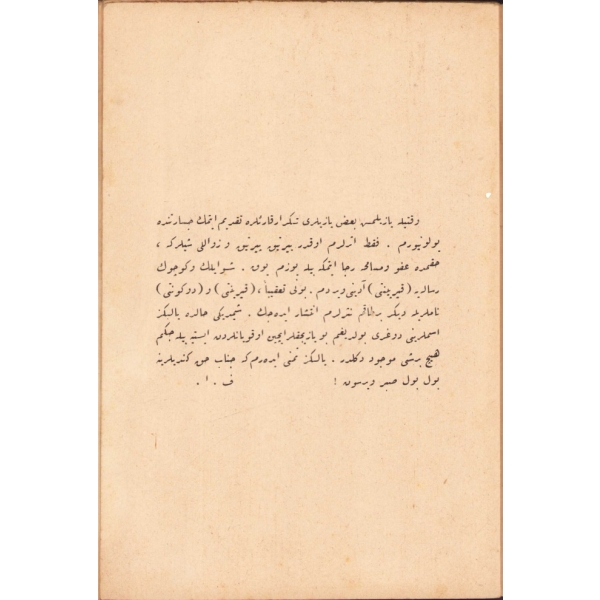 وقتیله یازیلمش بعض یازیلری تکرار قارئلره تقدیم ایتمك جسارتنده
بولونیورم . فقط اثرلرم اوقدر ییرتیق ییرتیق و زواللی شیلرکه ،
حقمده عفو ومسامحه رجا ایتمکه بیله یوزم یوق . شو ایلك وکوچوك
رساله یه (قیرپنتی) آدینی ویردم . بونی تعقیباً ، (قیرینتی) و (دوکونتی)
نامیله دیکر برطاقم نثرلرم انتشار ایده جك . شیمدیکی حالده یالکز
اسملرینی دوغری بولدیغم بو یازیجقلر ایچین اوقویانلردن ایسته یه جکم
هیچ برشی موجود دکلدر . یالکز تمنی ایده رم که جناب حق کندیلرینه
بول بول صبر ویرسون !   ف . ا .